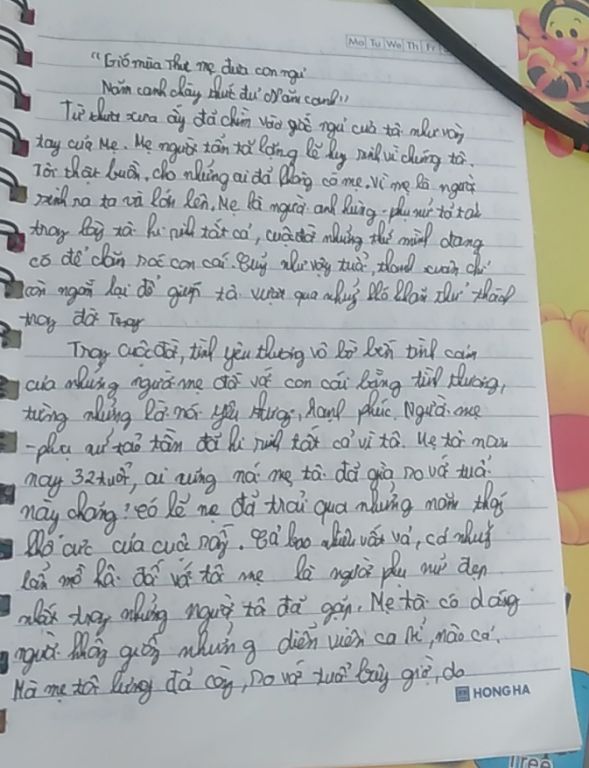 Mo Tu We Th Fr
"Gió mùa Thu mẹ đưa con ngủ
Năm canh chày thức đủ Năm canh"
Từ thưở xưa ấy đã chìm vào giấc ngủ của tôi như vòng
tay của Mẹ. Mẹ người tần tảo lặng lẽ hy sinh vì chúng tôi.
Tôi thật buồn, cho những ai đã không có mẹ. vì mẹ là người
sinh ra ta và lớn lên. Mẹ là người anh hùng - phụ nữ to tát
trong lòng tôi hi sinh tất cả, cuộc đời những thứ mình đang
có để chăm sóc con cái. như vậy tuổi, thanh xuân chỉ
còn ngắn lại để giúp tôi vượt qua những khó khăn thử thách
trong đời
Trong cuộc đời, tình yêu thương vô bờ bến tình cảm
của những người mẹ đối với con cái bằng tình thương,
từng những lời nói yêu thương, hạnh phúc. Người mẹ
- phụ nữ tảo tần đã hi sinh tất cả vì tôi. Mẹ tôi năm
nay 32 tuổi, ai cũng nói mẹ tôi đã già so với tuổi
này chăng! có lẽ mẹ đã trải qua những năm tháng
khổ cực của cuộc sống. Đã bao nhiêu vất vả, có những
lần mồ hôi đối với tôi mẹ là người phụ nữ đẹp
nhất trong những người tôi đã gặp. Mẹ tôi có dáng
người không giống những diễn viên ca sĩ, nào cả.
Mà mẹ tôi lưng đã còng, so với tuổi bây giờ, do
HONG HA
Tree